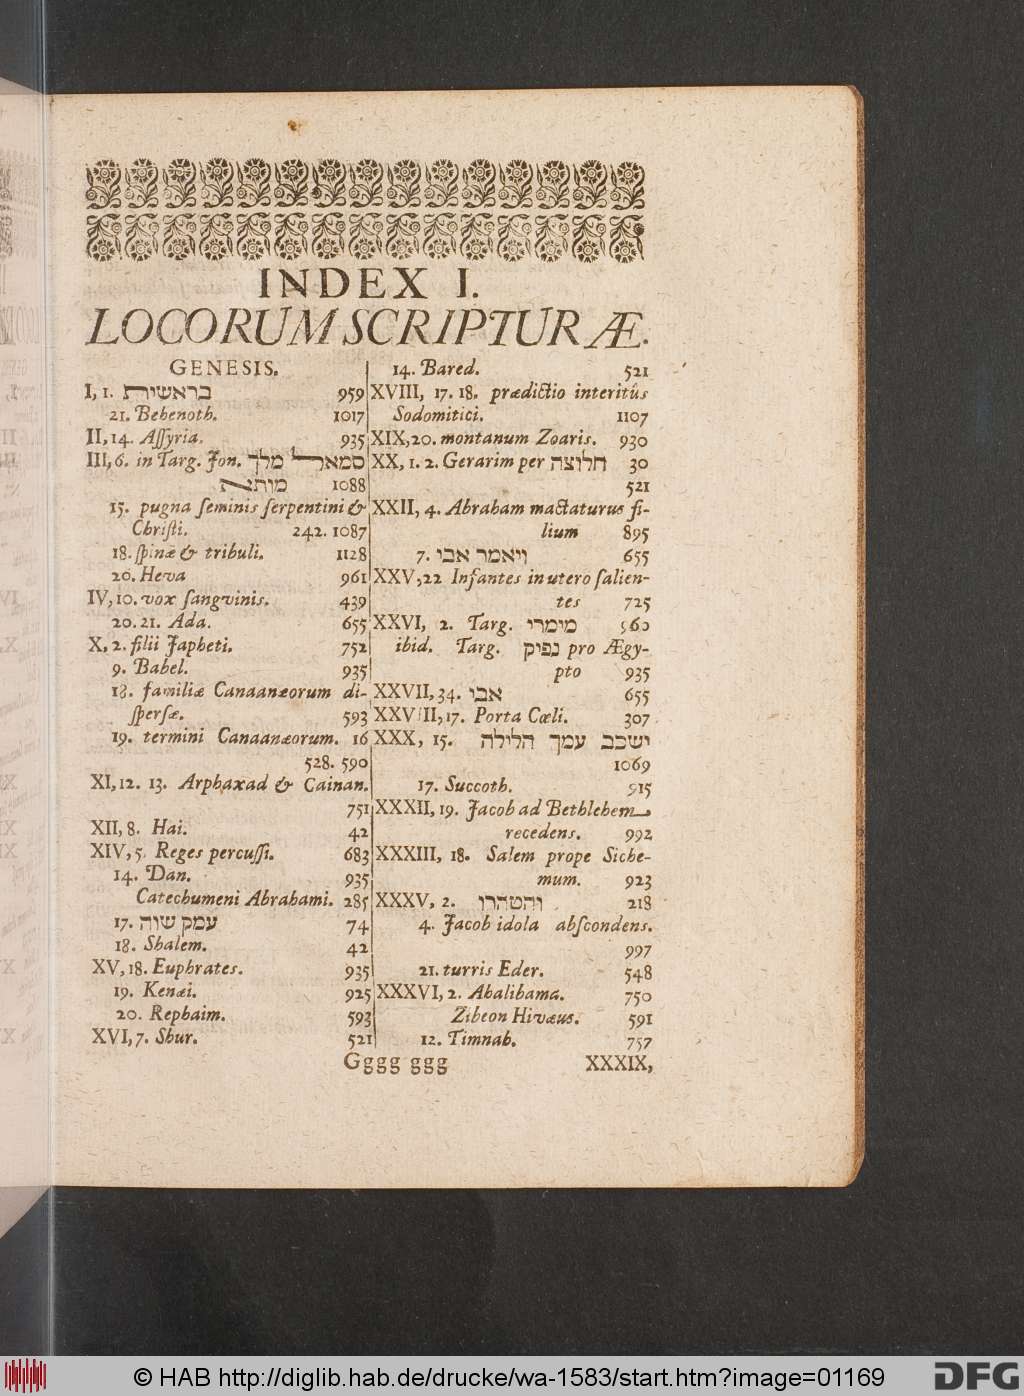 INDEX I.
LOCORUM SCRIPTURÆ.
GENESIS.
I, 1. בראשית 959
21. Behenoth. 1017
II, 14. Aſſyria. 935
III, 6. in Targ. Jon. סמאל מלך
מותא 1088
15. pugna ſeminis ſerpentini &
Chriſti. 242. 1087
18. ſpinæ & tribuli. 1128
20. Heva 961
IV, 10. vox ſangvinis. 439
20. 21. Ada. 655
X, 2. filii Japheti. 752
9. Babel. 935
18. familiæ Canaanæorum di-
ſperſæ. 593
19. termini Canaanæorum. 16
528. 590
XI, 12. 13. Arphaxad & Cainan.
751
XII, 8. Hai. 42
XIV, 5. Reges percuſſi. 683
14. Dan. 935
Catechumeni Abrahami. 285
17. עמק שוה 74
18. Shalem. 42
XV, 18. Euphrates. 935
19. Kenæi. 925
20. Rephaim. 593
XVI, 7. Shur. 521
14. Bared. 521
XVIII, 17. 18. prædictio interitûs
Sodomitici. 1107
XIX, 20. montanum Zoaris. 930
XX, 1. 2. Gerarim per חלוצה 30
521
XXII, 4. Abraham mactaturus fi-
lium 895
7. ויאמר אבי 655
XXV, 22 Infantes in utero ſalien-
tes 725
XXVI, 2. Targ. מימרי 960
ibid. Targ. נפיק pro Ægy-
pto 935
XXVII, 34. אבי 655
XXVIII, 17. Porta Cœli. 307
XXX, 15. ישכב עמך הלילה
1069
17. Succoth. 915
XXXII, 19. Jacob ad Bethlehem
recedens. 992
XXXIII, 18. Salem prope Siche-
mum. 923
XXXV, 2. והטהרו 218
4. Jacob idola abſcondens.
997
21. turris Eder. 548
XXXVI, 2. Ahalibama. 750
Zibeon Hivæus. 591
12. Timnah. 757
Gggg ggg XXXIX,
© HAB http://diglib.hab.de/drucke/wa-1583/start.htm?image=01169
DFG